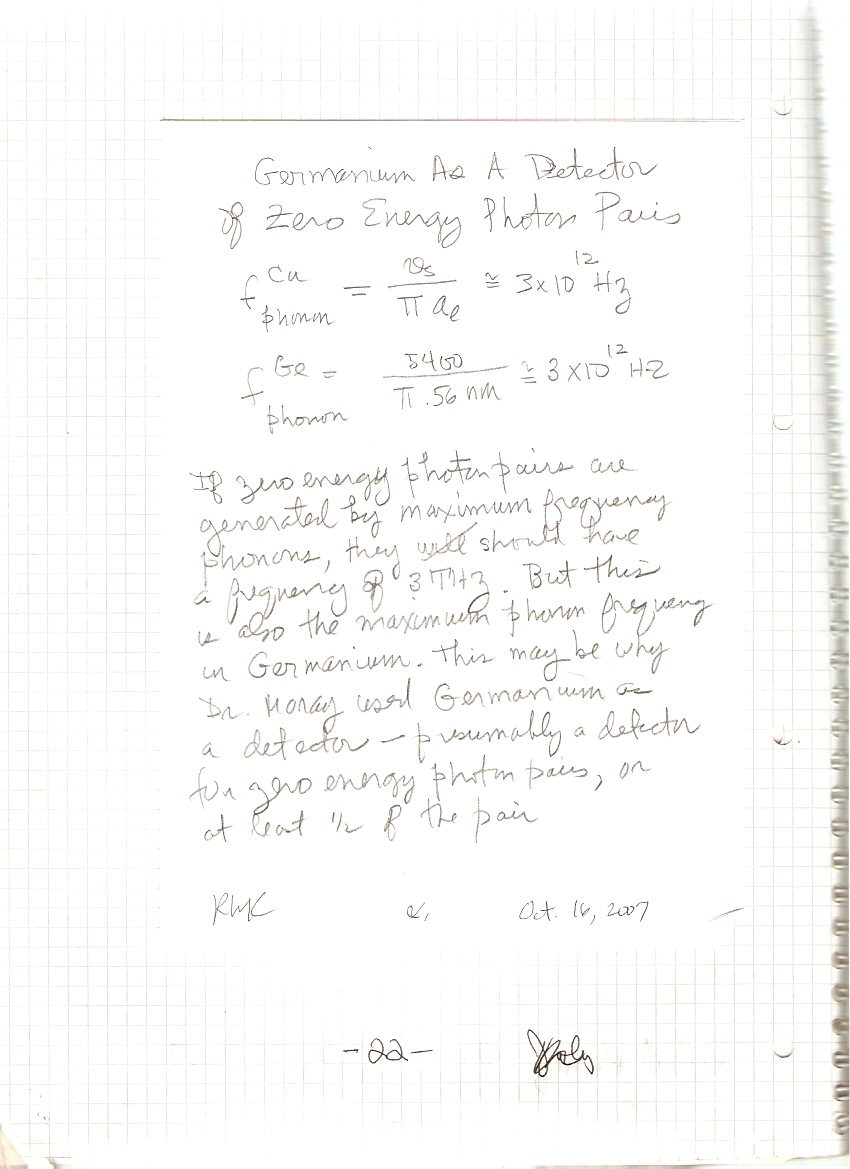 Germanium As A Detector
of Zero Energy Photon Pairs
f Cu phonon = vs / π ae ≅ 3x10^12 Hz
f Ge phonon = 5400 / π .56 nm ≅ 3x10^12 HZ
If zero energy photon pairs are
generated by maximum frequency
phonons, they should have
a frequency of 3 THz. But this
is also the maximum phonon frequency
in Germanium. This may be why
Dr. Moray used Germanium as
a detector - presumably a detector
for zero energy photon pairs, or
at least 1/2 of the pair
Oct. 16, 2007
-22-